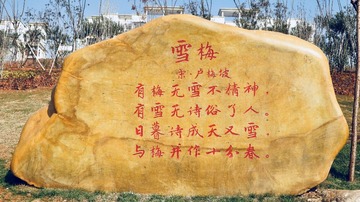 雪梅
宋·卢梅坡
有梅无雪不精神，
有雪无诗俗了人。
日暮诗成天又雪，
与梅并作十分春。